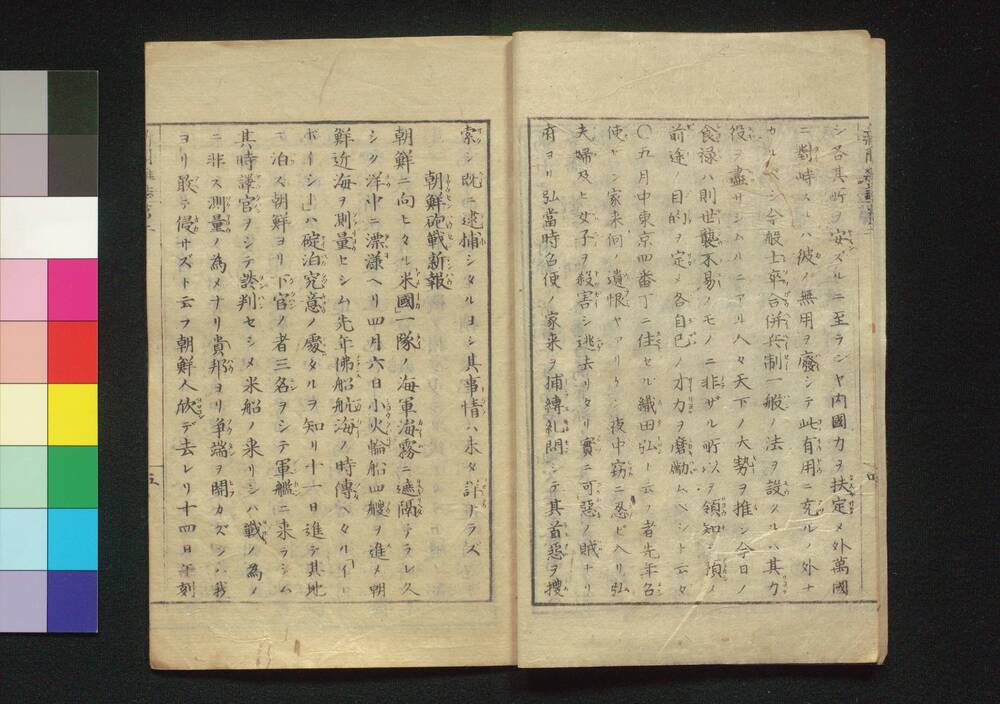 シ各其所ヲ安ズルニ至ランヤ内國力ヲ扶定メ外萬國
ニ對峙スルハ彼ノ無用ヲ廢シテ此有用ニ充ルノ外ナ
カルベシ今般士卒合併兵制一般ノ法ヲ設クルハ其力
役ヲ盡サシムルニアル人々天下ノ大勢ヲ推シ今日ノ
食禄ハ則世襲不易ノモノニ非ザル所以ヲ領知シ預メ
前途ノ目的ヲ定メ各自己ノ才力ヲ磨勵ムベシト云々
〇五月中東京四番丁ニ住セル織田弘ト云ノ者先年召
使ヒシ家来何ノ遺恨ヤアリケン夜中窃ニ忍ビ入リ弘
夫婦及ヒ女子ヲ殺害シ逃去リタリ實ニ可惡ノ賊ナリ
府ヨリ弘當時召使ノ家来ヲ捕縛糺問シテ其首惡ヲ搜
四
索シ既ニ逮捕シタルヨシ其事情ハ未タ詳ナラズ
朝鮮砲戰新報
朝鮮ニ向ヒタル米國一隊ノ海軍海霧ニ遮隔テラレ久
シク洋中ニ漂漾ヘリ四月六日小火輪船四艘ヲ進メ朝
鮮近海ヲ測量セシム先年佛船航海ノ時傳ヘタル「イー
ボイシー」ハ碇泊究意ノ處タルヲ知リ十一日進テ其地
ニ泊ス朝鮮ヨリ下官ノ者三名ヲシテ軍艦ニ来ラシム
其時譯官ヲシテ談判セシメ米船ノ来リシハ戰ノ為
ニ非ス測量ノ為メナリ貴邦ヨリ爭端ヲ開カズンハ我
ヨリ敢テ侵サズト云フ朝鮮人欣デ去レリ十四日午刻
五